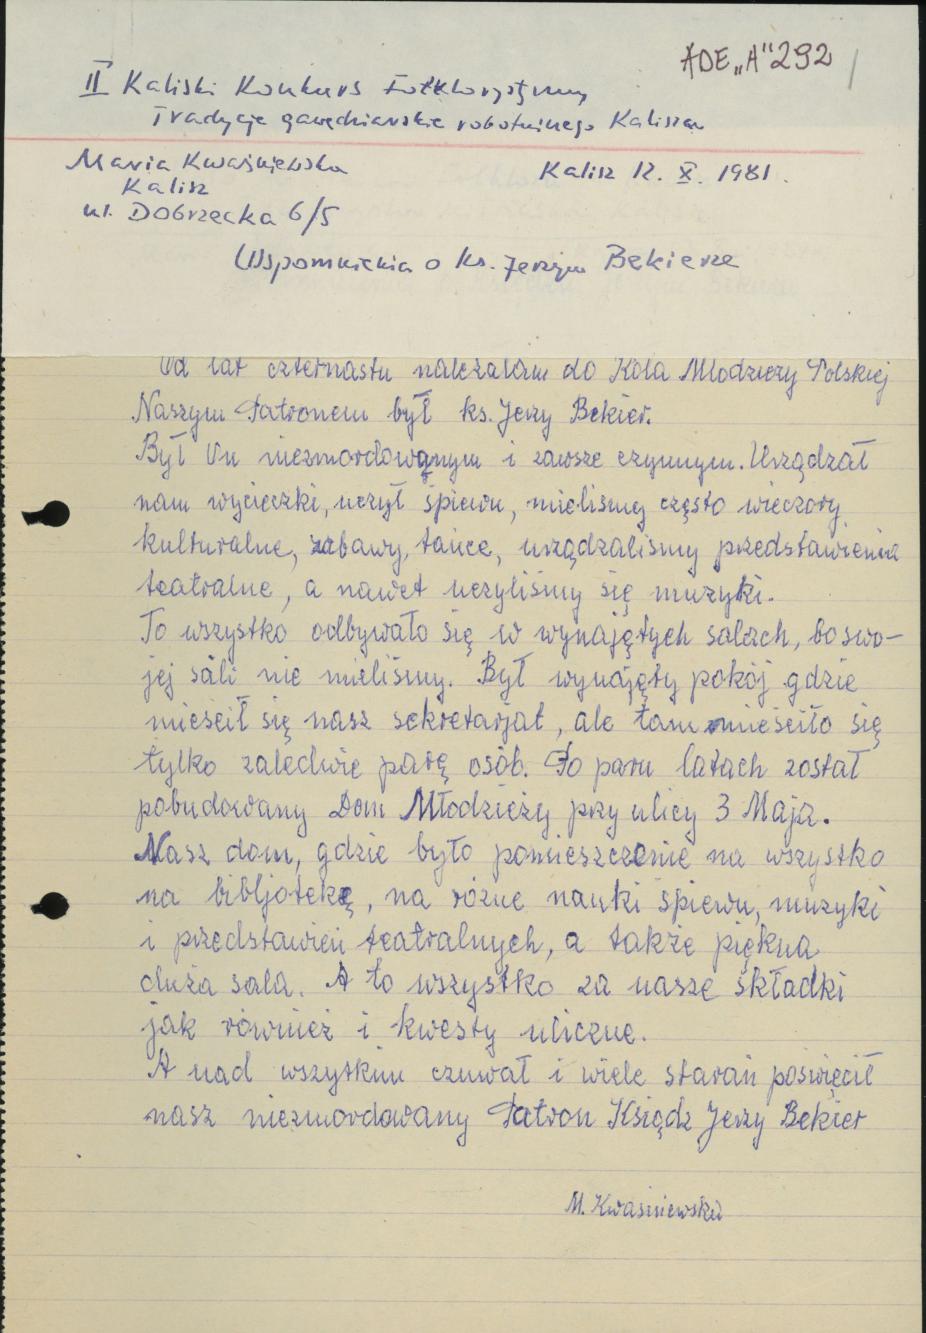 ADE „A" 292
II Kaliski Konkurs Folklorystyczny
Tradycje gawędziarskie robotniczego Kalisza
Maria Kwaśniewska
Kalisz
ul. Dobrzecka 6/5
Kalisz 12. X. 1981.
Wspomnienia o ks. Jerzym Bekierze
Od lat czternastu należałam do Koła Młodzieży Polskiej
Naszym Patronem był ks. Jerzy Bekier.
Był On niezmordowanym i zawsze czynnym. Urządzał
nam wycieczki, uczył śpiewu, mieliśmy często wieczory
kulturalne, zabawy, tańce, urządzaliśmy przedstawienia
teatralne, a nawet uczyliśmy się muzyki.
To wszystko odbywało się w wynajętych salach, bo swo-
jej sali nie mieliśmy. Był wynajęty pokój gdzie
mieścił się nasz sekretarjat, ale tam mieściło się
tylko zaledwie parę osób. Po paru latach został
pobudowany Dom Młodzieży przy ulicy 3 Maja.
Nasz dom, gdzie było pomieszczenie na wszystko
na bibljotekę, na różne nauki śpiewu, muzyki
i przedstawień teatralnych, a także piękna
duża sala. A to wszystko za nasze składki
jak również i kwesty uliczne.
A nad wszytkim czuwał i wiele starań poświęcił
nasz niezmordowany Patron Ksiądz Jerzy Bekier
M. Kwaśniewska